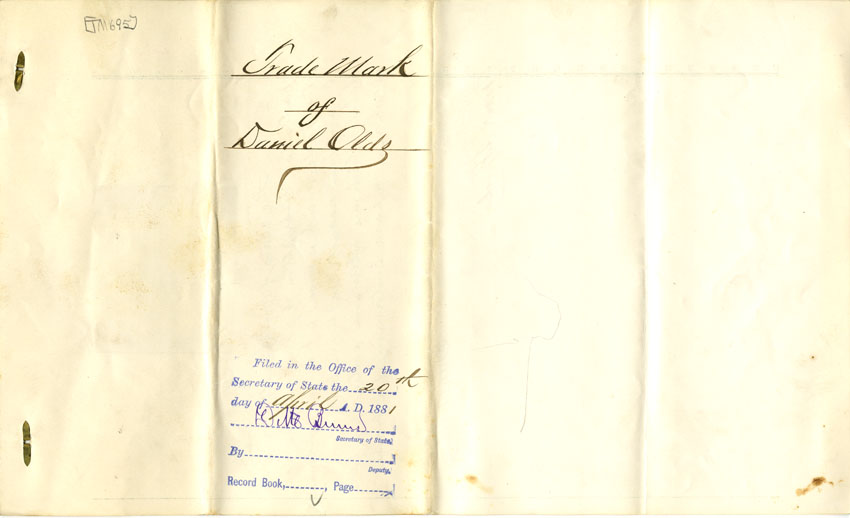 [TM695]
Trade Mark
of
Daniel Olds
Filed in the Office of the
Secretary of State the 20th
day of April A. D. 1881
Secretary of State
By
Deputy.
Record Book, , Page